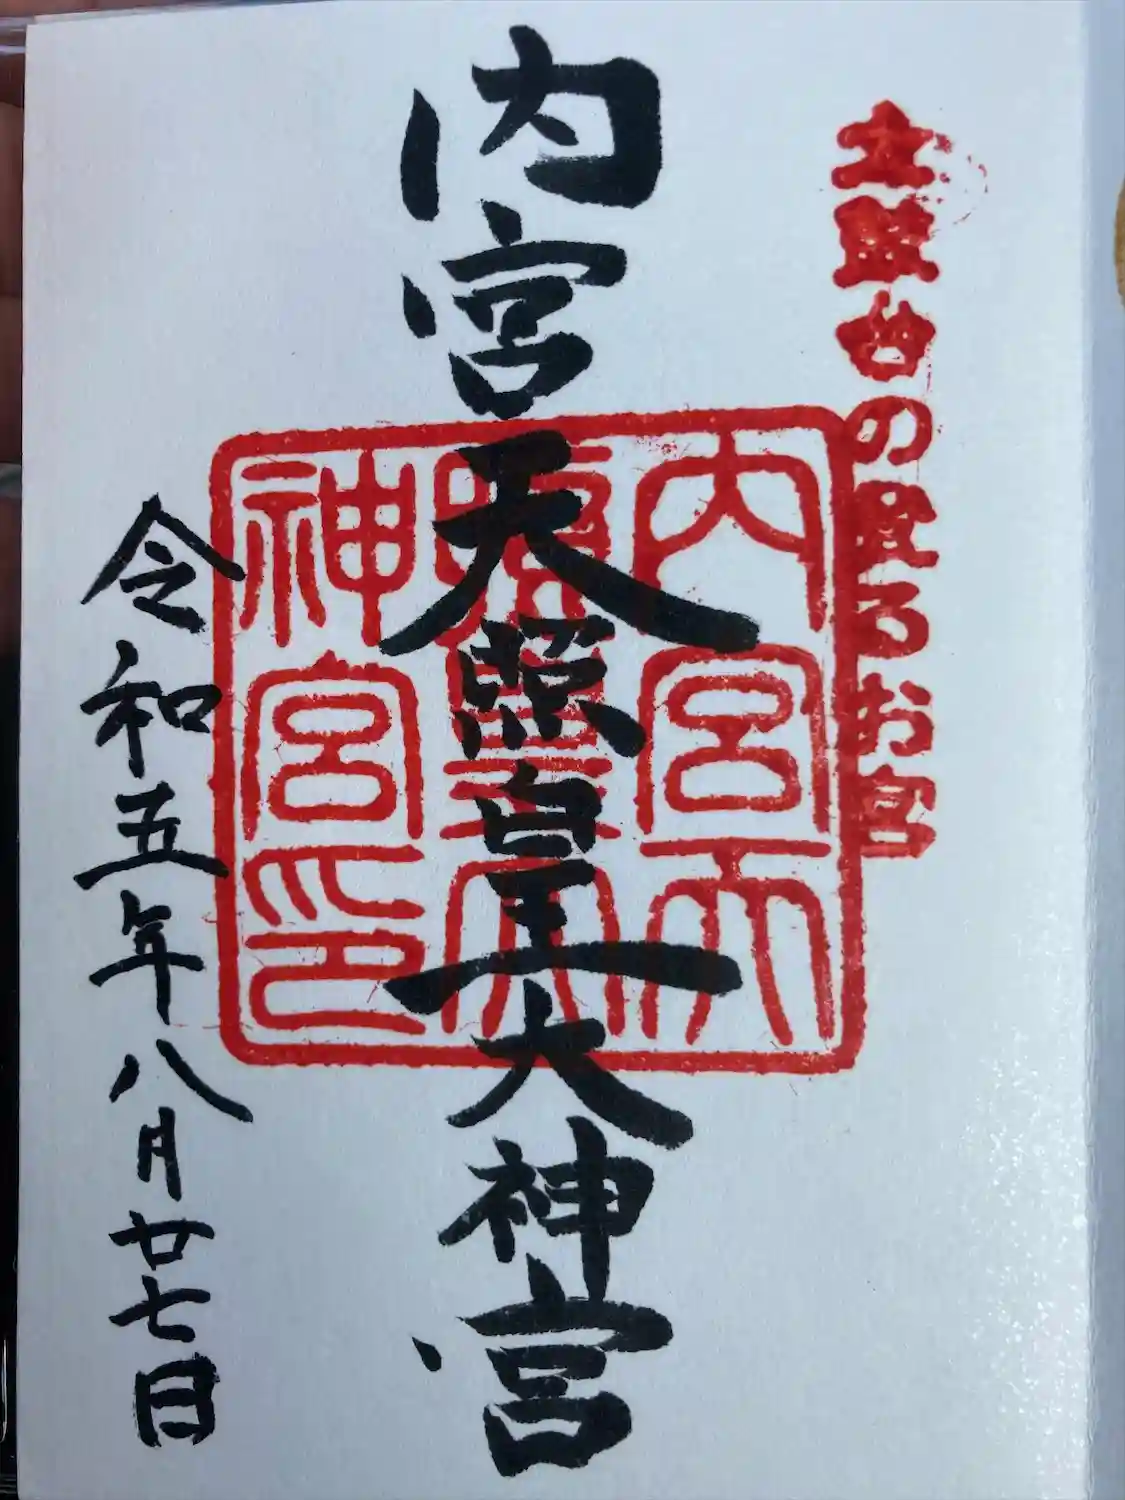 太鼓台の登るお宮
内宮天照皇大神宮
内宮天
照皇大
神宮印
令和五年八月廿七日